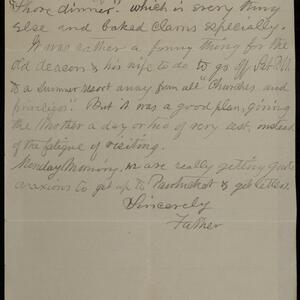 Shore dinner" which is every thing
else and baked clams especially.
It was rather a funny thing for the
old deacon & his wife to do to go off Sat. P.M.
to a Summer resort away from all "Churches and
privileges". But it was a good plan, giving
the Mother a day or two of very rest, instead
of the fatigue of visiting.
Monday Morning. we are really getting quite
anxious to get up to Pawtucket & get letters.
Sincerely
Father